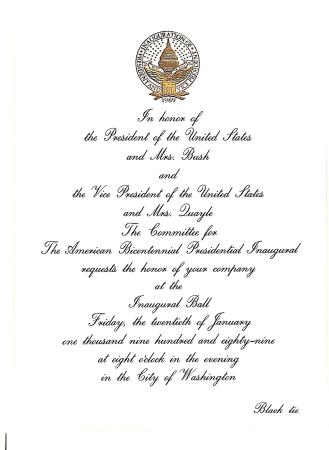 INAUGURATION OF
PRESIDENT AND VICE PRESIDENT
1989
In honor of
the President of the United States
and Mrs. Bush
and
the Vice President of the United States
and Mrs. Quayle
The Committee for
The American Bicentennial Presidential Inaugural
requests the honor of your company
at the
Inaugural Ball
Friday, the twentieth of January
one thousand nine hundred and eighty-nine
at eight o'clock in the evening
in the City of Washington
Black tie